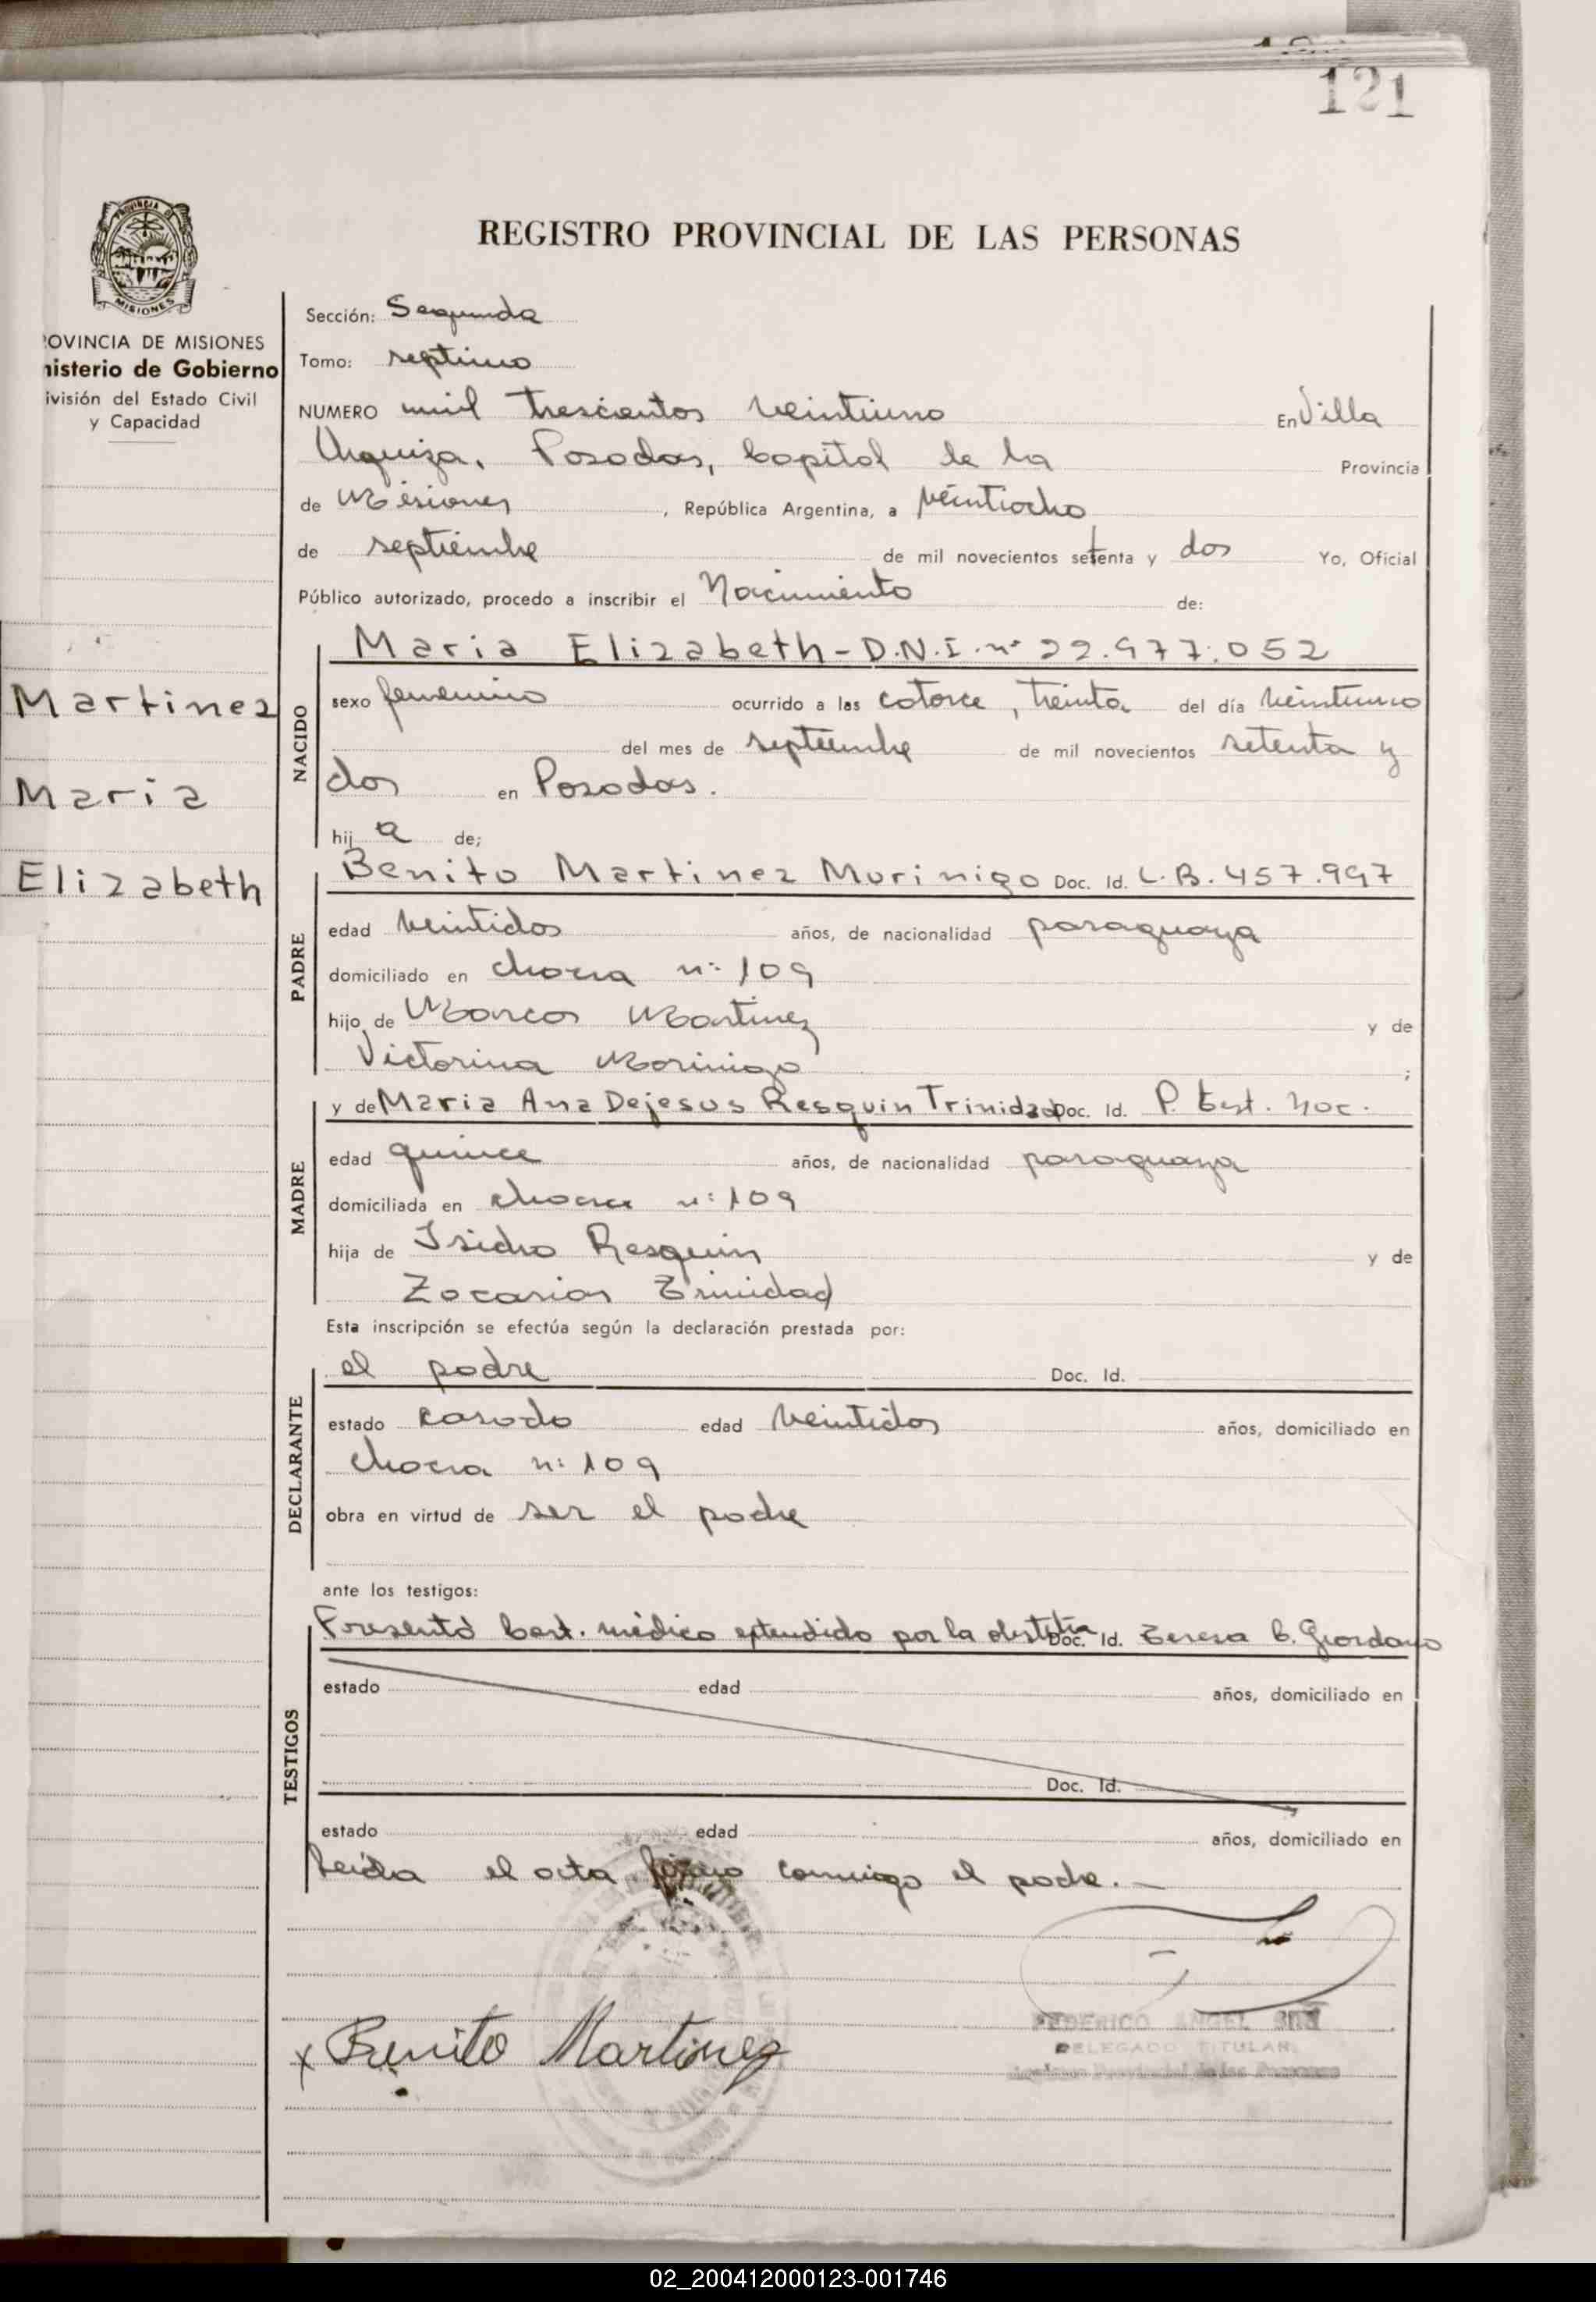 121
REGISTRO PROVINCIAL DE LAS PERSONAS
MISIONES
OVINCIA DE MISIONES
nisterio de Gobierno
ivisión del Estado Civil
y Capacidad
Martinez
Maria
Elizabeth
Sección: Segunda
Tomo: septimo
NUMERO mil trescientos veintiuno En Villa
Urquiza, Posadas, Capital de la Provincia
de Misiones, República Argentina, a veintiocho
de septiembre de mil novecientos setenta y dos Yo, Oficial
Público autorizado, procedo a inscribir el Nacimiento de:
NACIDO
Maria Elizabeth - D.N.I. nº 22.977.052
sexo femenino ocurrido a las catorce, treinta del día veintiuno
del mes de septiembre de mil novecientos setenta y
dos en Posadas.
hija de;
PADRE
Benito Martinez Morinigo Doc. Id. C.B. 457.997
edad veintidos años, de nacionalidad paraguaya
domiciliado en chacra nº 109
hijo de Marcos Martinez y de
Victorina Morinigo ;
MADRE
y de Maria Ana Dejesus Resquin Trinidad Doc. Id. P. Cert. Nac.
edad quince años, de nacionalidad paraguaya
domiciliada en chacra nº 109
hija de Isidro Resquin y de
Zacarias Trinidad
Esta inscripción se efectúa según la declaración prestada por:
DECLARANTE
el padre Doc. Id.
estado casado edad veintidos años, domiciliado en
chacra nº 109
obra en virtud de ser el padre
ante los testigos:
TESTIGOS
Presentó Cert. médico extendido por la obstetra Doc. Id. Teresa C. Giordano
estado edad años, domiciliado en
Doc. Id.
estado edad años, domiciliado en
Leida el acta firma conmigo el padre. -
x Benito Martinez
FEDERICO ANGEL
DELEGADO TITULAR
Provincial de las Personas
02_200412000123-001746